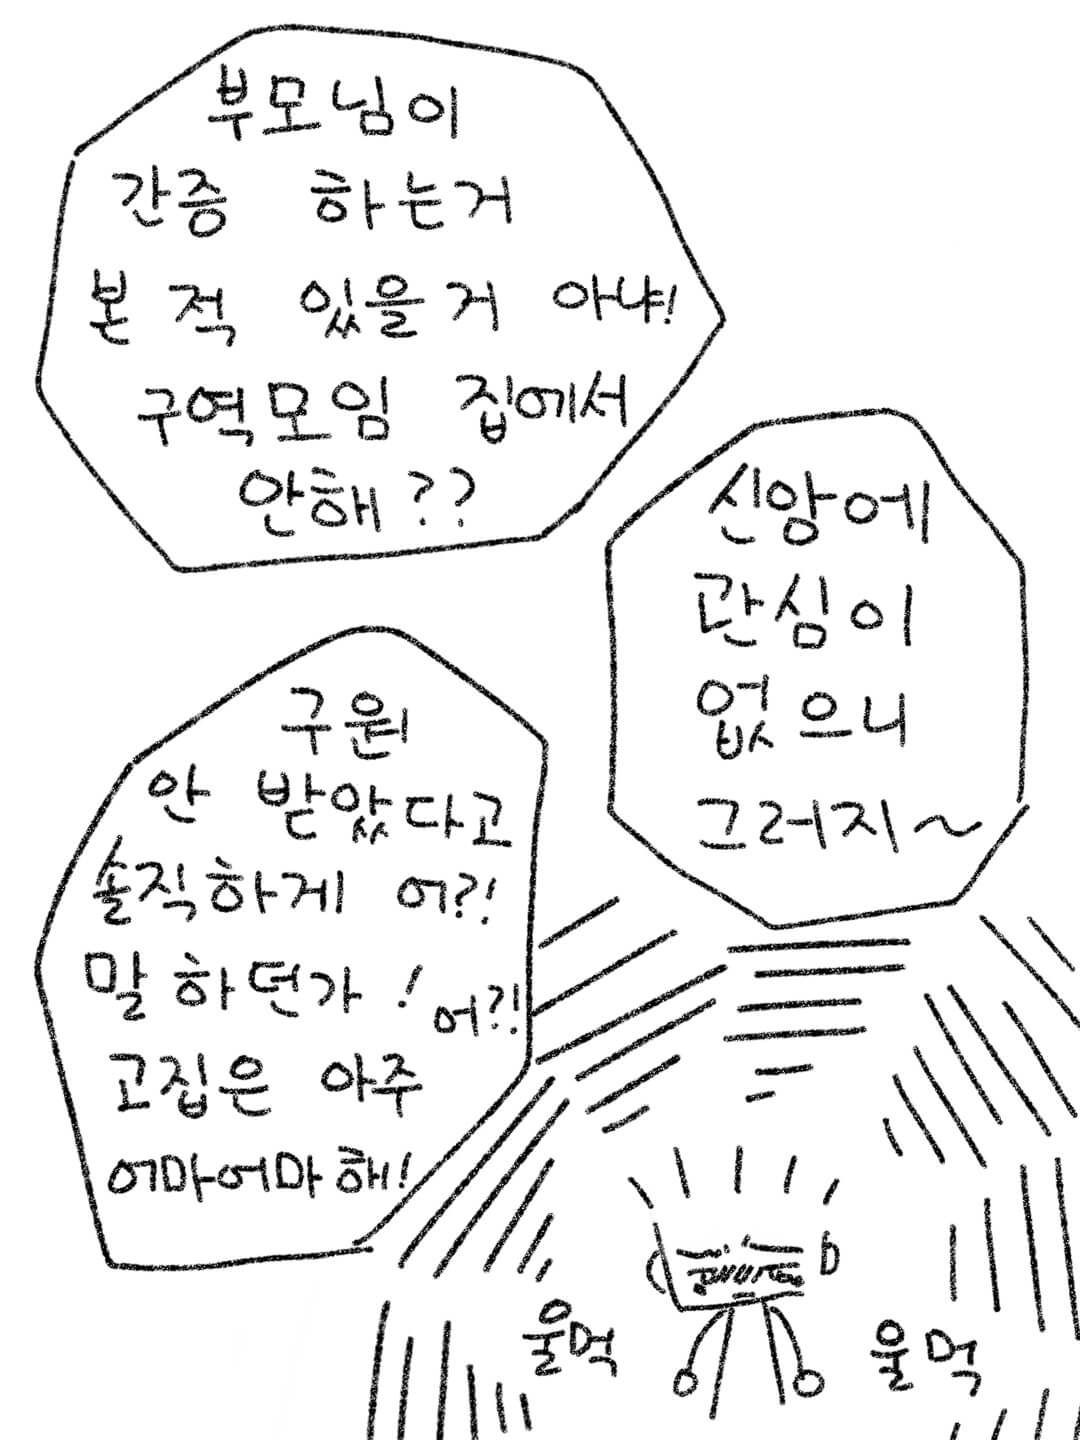 부모님이
간증 하는거
본 적 있을거 아냐!
구역모임 집에서
안해??
신앙에
관심이
없으니
그러지~
구원
안 받았다고
솔직하게 어?!
말하던가! 어?!
고집은 아주
어마어마해!
울먹
울먹